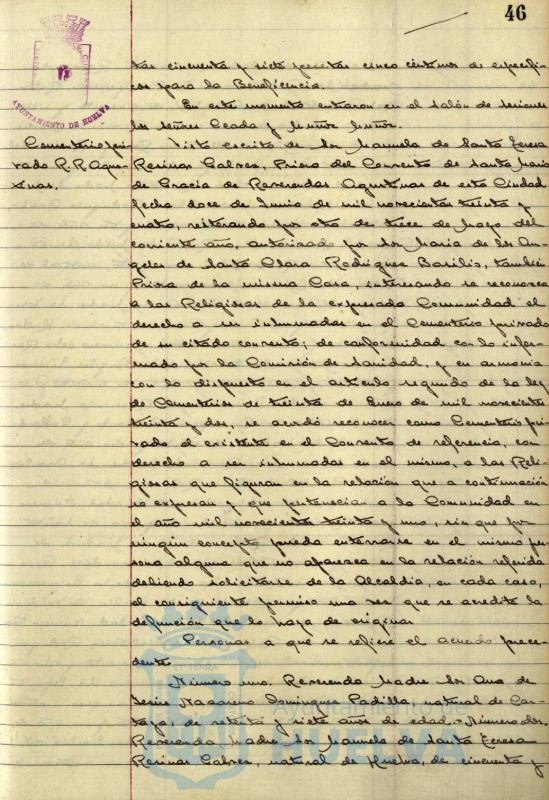 46
AYUNTAMIENTO DE HUELVA
tas cincuenta y siete pesetas cinco céntimos de específi-
cos para la Beneficencia.
En este momento entraron en el salón de sesiones
los señores Ceada y Muñoz Muñoz.
Cementerio pri-
vado R.R. Agus-
tinas.
Visto escrito de Sor Manuela de Santa Teresa
Resinas Galvez, Priora del Convento de Santa María
de Gracia de Reverendas Agustinas de esta Ciudad
fecha doce de Junio de mil novecientos treinta y
cuatro, reiterando por otro de trece de Mayo del
corriente año, autorizado por Sor Maria de los An-
geles de Santa Clara Rodriguez Barilis, también
Priora de la misma Casa, interesando se reconozca
a las Religiosas de la expresada Comunidad el
derecho a ser inhumadas en el Cementerio privado
de su citado convento; de conformidad con lo infor-
mado por la Comisión de Sanidad, y en armonia
con lo dispuesto en el artículo segundo de la ley
de Cementerios de treinta de Enero de mil novecientos
treinta y dos, se acordó reconocer como Cementerio pri-
vado el existente en el Convento de referencia, con
derecho a ser inhumadas en el mismo, a las Reli-
giosas que figuran en la relación que a continuación
se expresan y que pertenecian a la Comunidad en
el año mil novecientos treinta y uno, sin que por
ningún concepto pueda enterrarse en el mismo per-
sona alguna que no aparezca en la relación referida
debiendo solicitarse de la Alcaldía, en cada caso,
el consiguiente permiso una vez que se acredite la
defunción que lo haya de originar.
Personas a que se refiere el acuerdo prece-
dente.
Número uno. Reverenda Madre Sor Ana de
Jesús Nazareno Dominguez Padilla, natural de Car-
taya, de setenta y siete años de edad. = Número dos.
Reverenda Madre Sor Manuela de Santa Teresa
Resinas Galvez, natural de Huelva, de cincuenta y
Ayuntamiento de
HUELVA